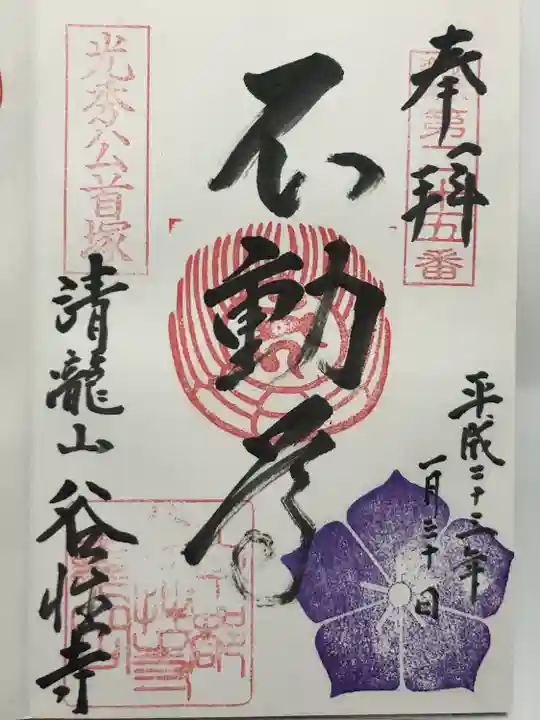 奉拝
第二十五番
平成二十二年
一月三十日
不動尊
光秀公首塚
清龍山 谷性寺